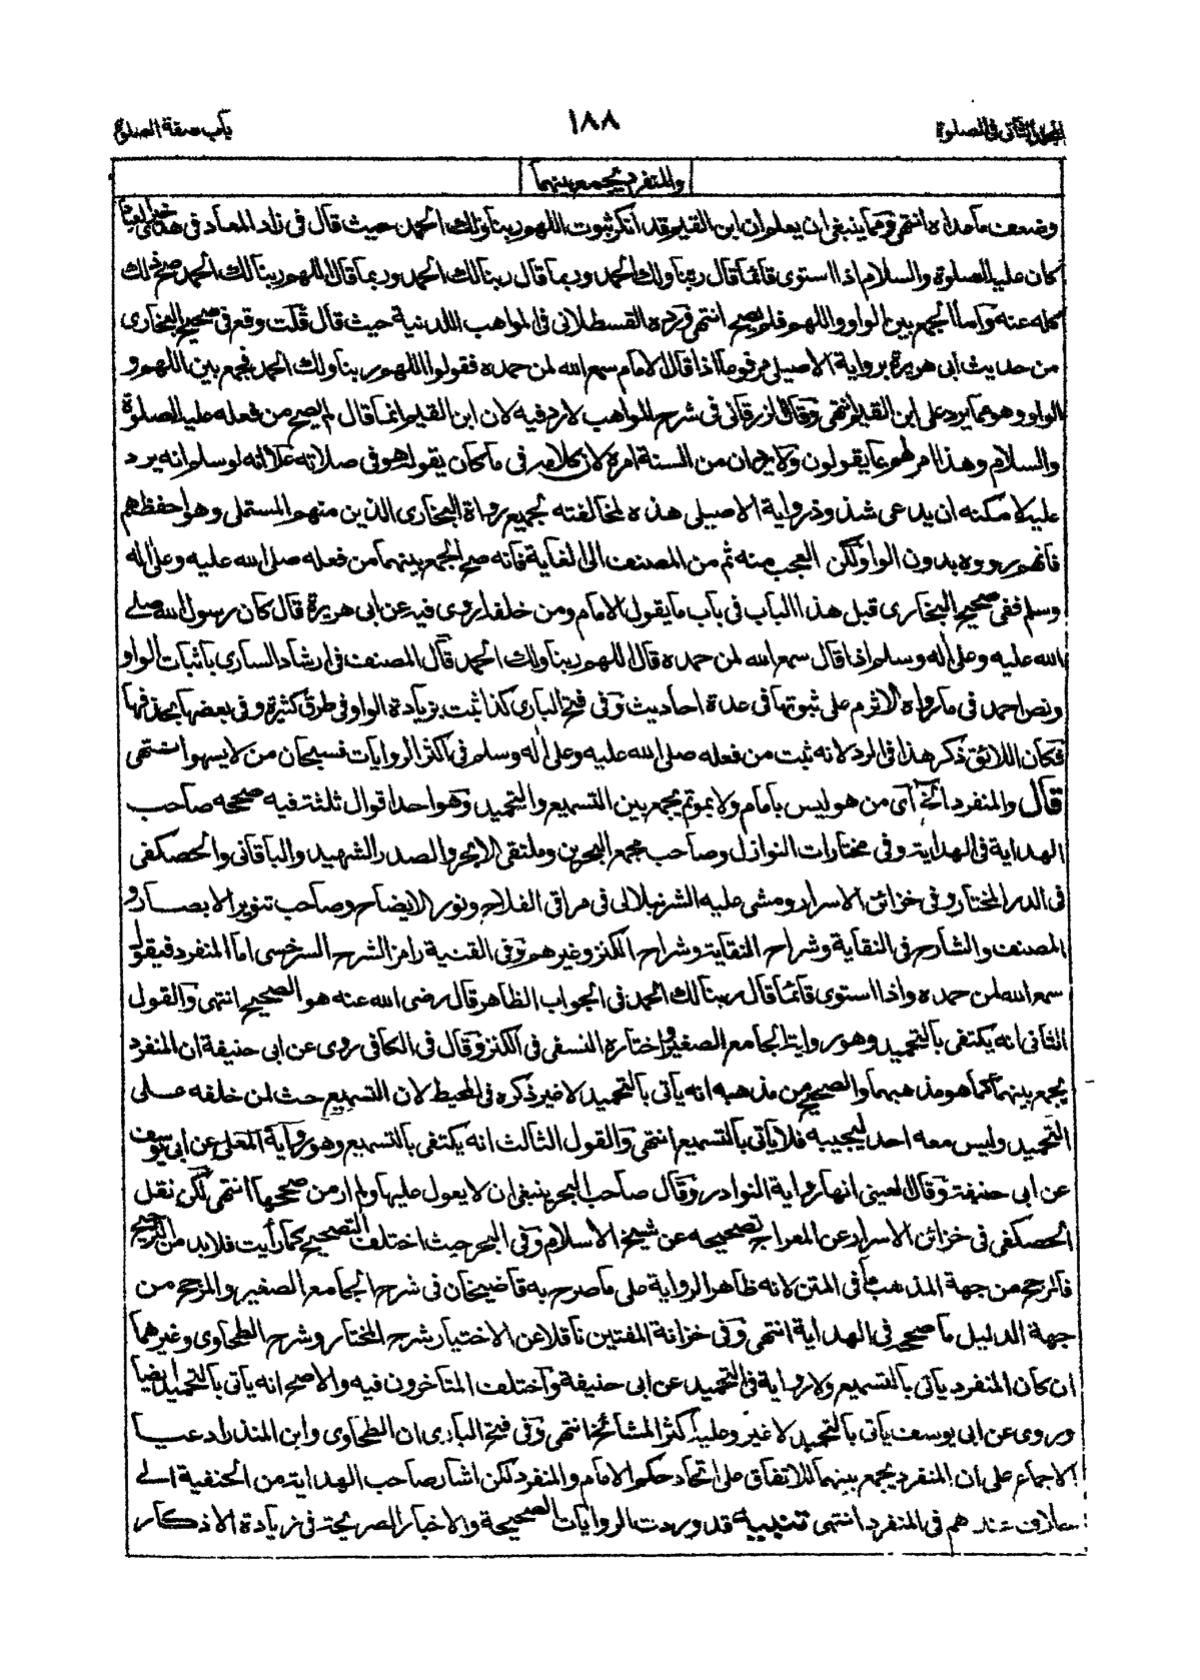 المجلد الثاني في الصلوة
١٨٨
باب صفة الصلوة
والمنفرد يجمع بينهما
وضعف ما عداه انتهى ومما ينبغي ان يعلم ان ابن القيم قد انكر ثبوت اللهم ربنا ولك الحمد حيث قال في زاد المعاد في هدى خير العباد
كان عليه الصلوة والسلام اذا استوى قائما قال ربنا ولك الحمد وربما قال ربنا لك الحمد وربما قال اللهم ربنا لك الحمد صح ذلك
كله عنه واما الجمع بين الواو واللهم فلم يصح انتهى ورده القسطلاني في المواهب اللدنية حيث قال قلت وقع في صحيح البخاري
من حديث ابي هريرة برواية الاصيلي مرفوعا اذا قال الامام سمع الله لمن حمده فقولوا اللهم ربنا ولك الحمد فجمع بين اللهم و
الواو وهو مما يرد على ابن القيم انتهى وقال الزرقاني في شرح المواهب لا رد فيه لان ابن القيم انما قال لم يصح من فعله عليه الصلوة
والسلام وهذا امر لهم بما يقولون ولا يرد ان من السنة امره لان كلامه في ما كان يقوله هو في صلاته على انه لو سلم انه يرد
عليه لامكنه ان يدعي شذوذ رواية الاصيلي هذه لمخالفته لجميع رواة البخاري الذين منهم المستملي وهو احفظهم
فانهم رووه بدون الواو لكن العجب منه ثم من المصنف الى الغاية فانه صح الجمع بينهما من فعله صلى الله عليه وعلى اله
وسلم ففي صحيح البخاري قبل هذا الباب في باب ما يقول الامام ومن خلفه اروى فيه عن ابي هريرة قال كان رسول الله صلى
الله عليه وعلى اله وسلم اذا قال سمع الله لمن حمده قال اللهم ربنا ولك الحمد قال المصنف في ارشاد الساري باثبات الواو
ونص احمد في ما رواه الاثرم على ثبوتها في عدة احاديث وفي فتح الباري كذا ثبت بزيادة الواو في طرق كثيرة وفي بعضها بحذفها
فكان اللائق ذكر هذا في الرد لانه ثبت من فعله صلى الله عليه وعلى اله وسلم في اكثر الروايات فسبحان من لا يسهو انتهى
قال والمنفرد الخ اى من هو ليس بامام ولا بموتم يجمع بين التسميع والتحميد وهو احد اقوال ثلثة فيه صححه صاحب
الهداية في الهداية وفي مختارات النوازل وصاحب مجمع البحرين وملتقى الابحر والصدر الشهيد والباقاني والحصكفي
في الدر المختار وفي خزائن الاسرار ومشى عليه الشرنبلالي في مراقي الفلاح ونور الايضاح وصاحب تنوير الابصار و
المصنف والشارح في النقاية وشراح النقاية وشراح الكنز وغيرهم وفي القنية رامز الشرح السرخسي اما المنفرد فيقول
سمع الله لمن حمده واذا استوى قائما قال ربنا لك الحمد في الجواب الظاهر قال رضي الله عنه هو الصحيح انتهى والقول
الثاني انه يكتفي بالتحميد وهو رواية الجامع الصغير واختاره النسفي في الكنز وقال في الكافي روى عن ابي حنيفة ان المنفرد
يجمع بينهما كما هو مذهبهما والصحيح من مذهبه انه يأتي بالتحميد لا غير ذكره في المحيط لان التسميع حث لمن خلفه على
التحميد وليس معه احد ليجيبه فلا يأتي بالتسميع انتهى والقول الثالث انه يكتفي بالتسميع وهو رواية المعلى عن ابي يوسف
عن ابي حنيفة وقال العيني انها رواية النوادر وقال صاحب البحر ينبغي ان لا يعول عليها ولم ار من صححها انتهى لكن نقل
الحصكفي في خزائن الاسرار عن المعراج تصحيحه عن شيخ الاسلام وفي البحر حيث اختلف التصحيح كما رأيت فلا بد من الترجيح
فالمرجح من جهة المذهب ما في المتن لانه ظاهر الرواية على ما صرح به قاضيخان في شرح الجامع الصغير والمرجح من
جهة الدليل ما صححه في الهداية انتهى وفي خزانة المفتين ناقلا عن الاختيار شرح المختار وشرح الطحاوي وغيرهما
ان كان المنفرد يأتي بالتسميع ولا رواية في التحميد عن ابي حنيفة واختلف المتأخرون فيه والاصح انه يأتي بالتحميد ايضا
وروى عن ابي يوسف يأتي بالتحميد لا غير وعليه اكثر المشائخ انتهى وفي فتح الباري ان الطحاوي وابن المنذر ادعيا
الاجماع على ان المنفرد يجمع بينهما للاتفاق على اتحاد حكم الامام والمنفرد لكن اشار صاحب الهداية من الحنفية الى
خلاف عندهم في المنفرد انتهى تنبيه قد وردت الروايات الصحيحة والاخبار الصريحة في زيادة الاذكار